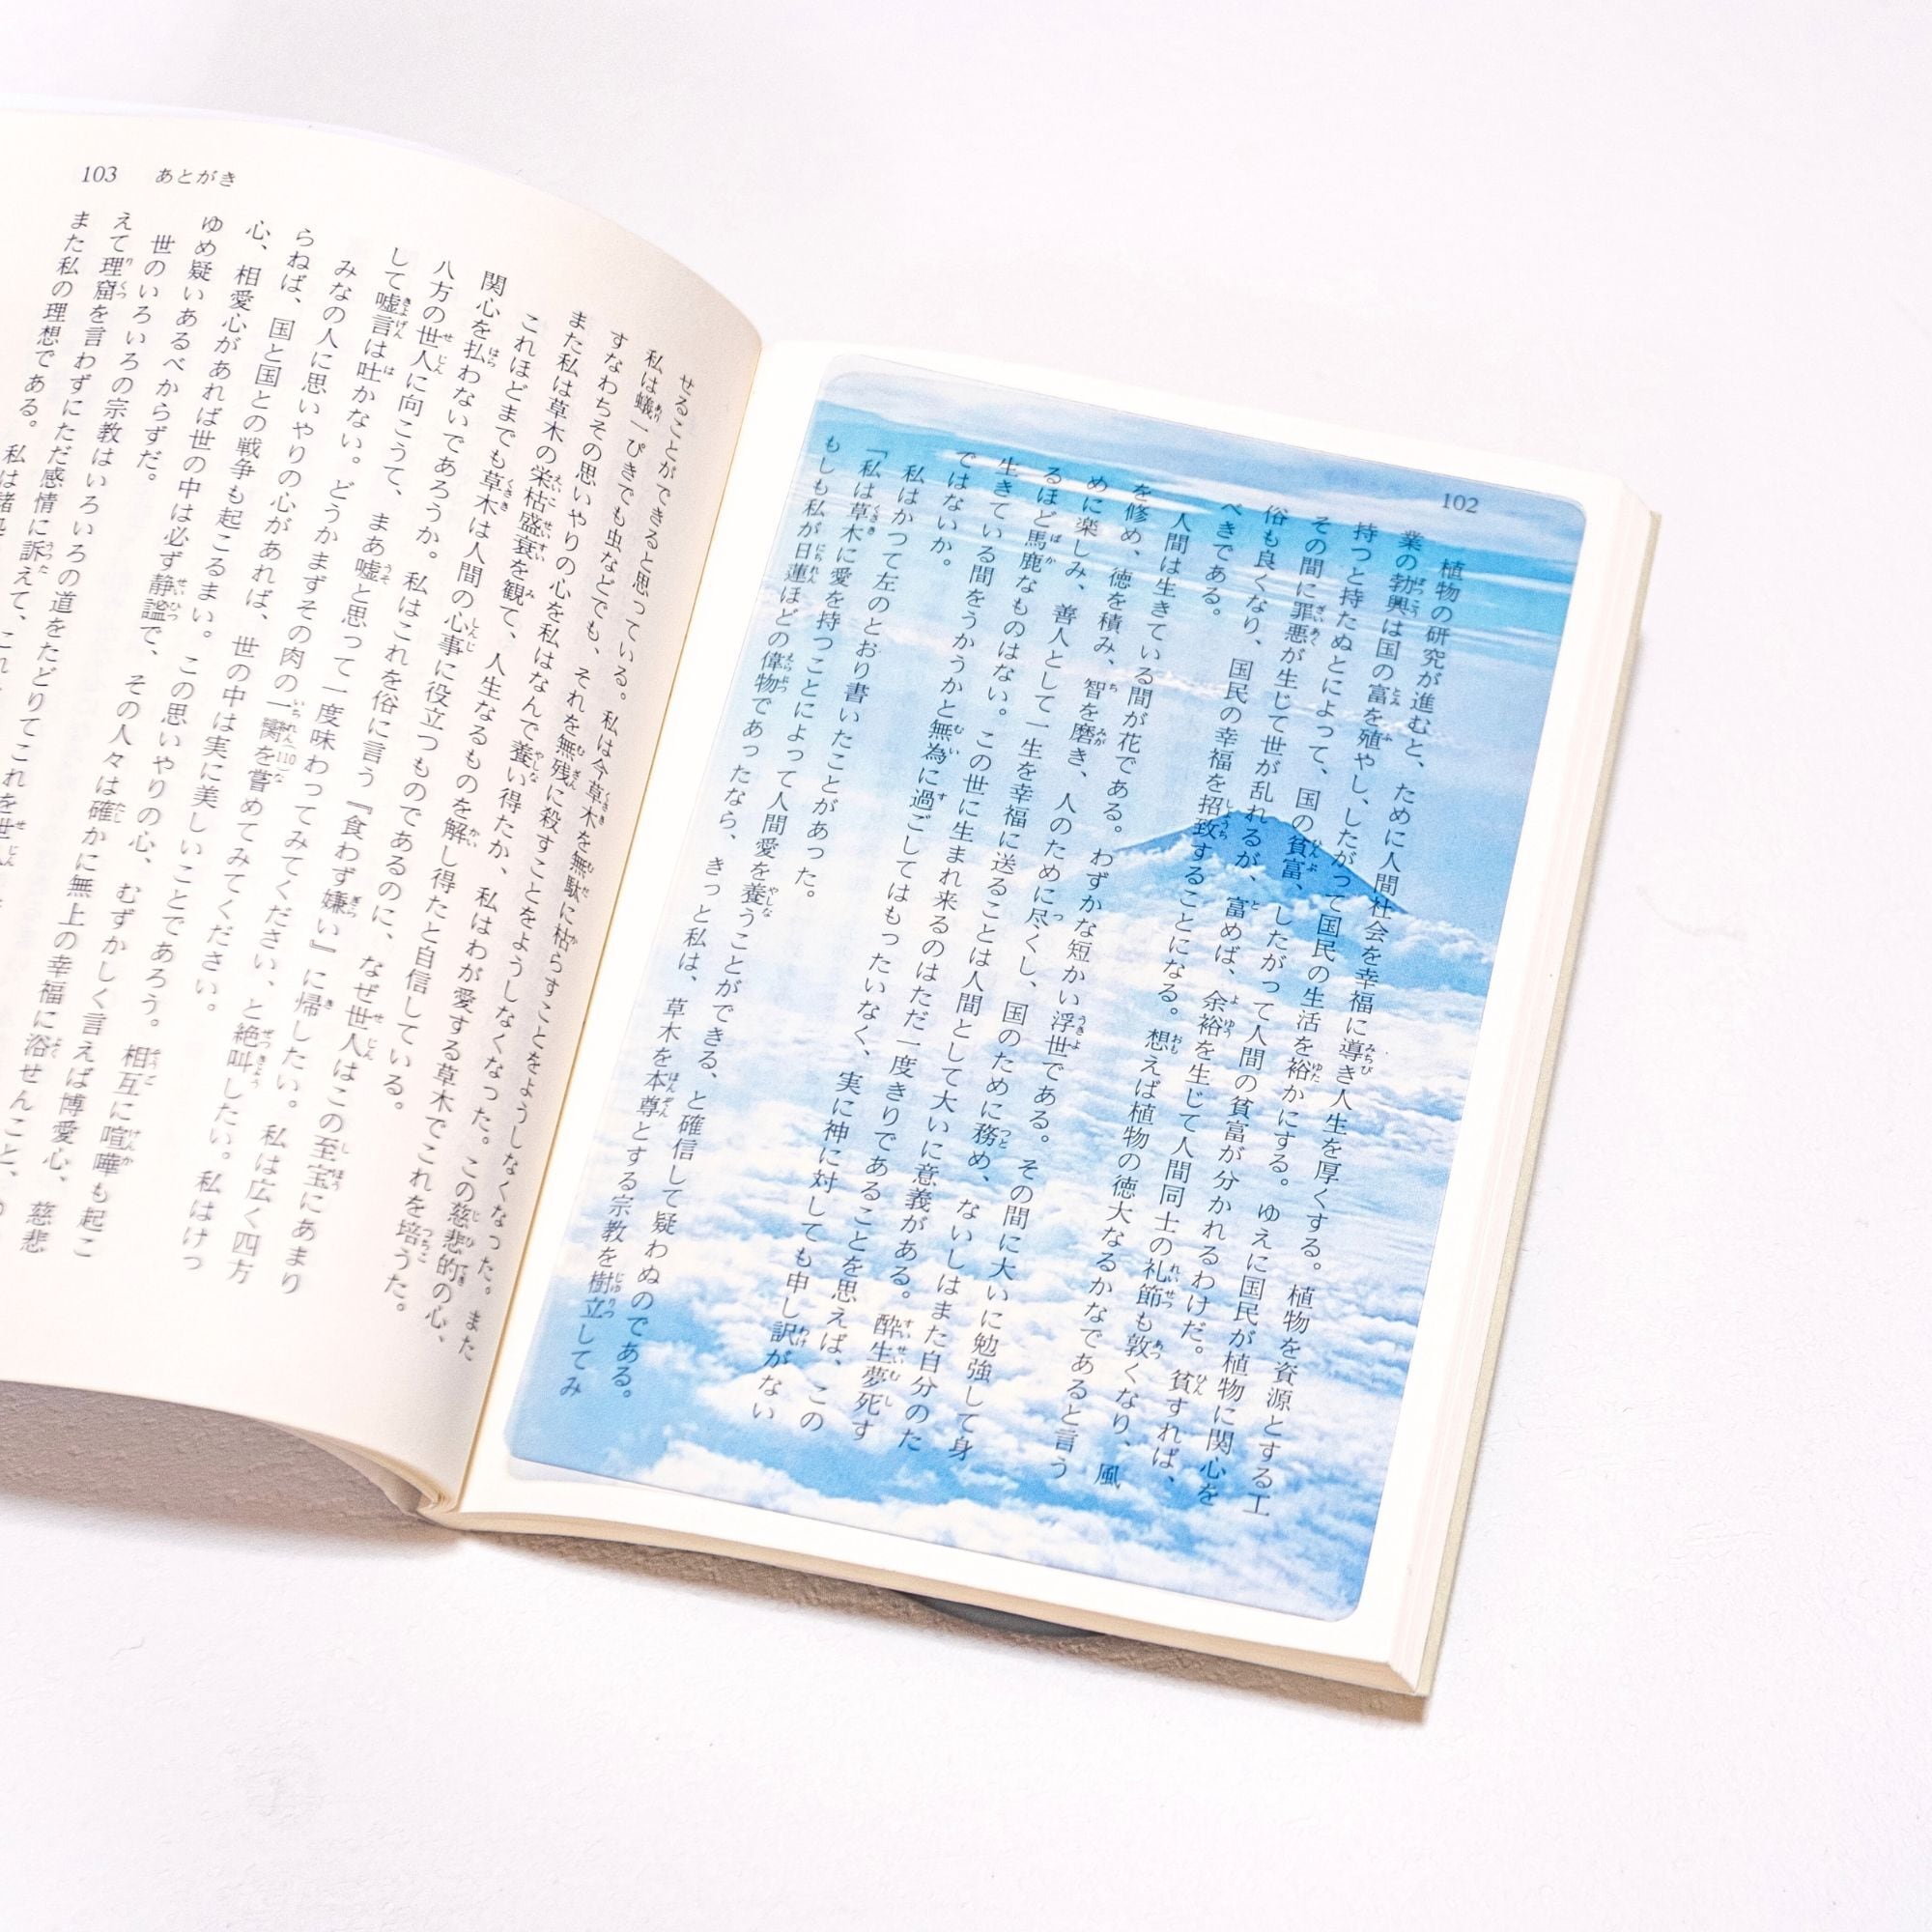 102
植物の研究が進むと、ために人間社会を幸福に導き人生を厚くする。植物を資源とする工
業の勃興は国の富を殖やし、したがって国民の生活を裕かにする。ゆえに国民が植物に関心を
持つと持たぬとによって、国の貧富、したがって人間の貧富が分かれるわけだ。貧すれば、
その間に罪悪が生じて世が乱れるが、富めば、余裕を生じて人間同士の礼節も敦くなり、風
俗も良くなり、国民の幸福を招致することになる。想えば植物の徳大なるかなであると言う
べきである。
人間は生きている間が花である。わずかな短かい浮世である。その間に大いに勉強して身
を修め、徳を積み、智を磨き、人のために尽くし、国のために務め、ないしはまた自分のた
めに楽しみ、善人として一生を幸福に送ることは人間として大いに意義がある。酔生夢死す
るほど馬鹿なものはない。この世に生まれ来るのはただ一度きりであることを思えば、この
生きている間をうかうかと無為に過ごしてはもったいなく、実に神に対しても申し訳がない
ではないか。
私はかつて左のとおり書いたことがあった。
「私は草木に愛を持つことによって人間愛を養うことができる、と確信して疑わぬのである。
もしも私が日蓮ほどの偉物であったなら、きっと私は、草木を本尊とする宗教を樹立してみ
103 あとがき
せることができると思っている。私は今草木を無駄に枯らすことをようしなくなった。また
私は蟻一ぴきでも虫などでも、それを無残に殺すことをようしなくなった。この慈悲的の心、
すなわちその思いやりの心を私はなんで養い得たか、私はわが愛する草木でこれを培うた。
また私は草木の栄枯盛衰を観て、人生なるものを解し得たと自信している。
これほどまでも草木は人間の心事に役立つものであるのに、なぜ世人はこの至宝にあまり
関心を払わないであろうか。私はこれを俗に言う『食わず嫌い』に帰したい。私は広く四方
八方の世人に向こうて、まあ嘘と思って一度味わってみてください、と絶叫したい。私はけっ
して嘘言は吐かない。どうかまずその肉の一臠を嘗めてみてください。
みなの人に思いやりの心があれば、世の中は実に美しいことであろう。相互に喧嘩も起こ
らねば、国と国との戦争も起こるまい。この思いやりの心、むずかしく言えば博愛心、慈悲
心、相愛心があれば世の中は必ず静謐で、その人々は確かに無上の幸福に浴せんこと、
ゆめ疑いあるべからずだ。
世のいろいろの宗教はいろいろの道をたどりてこれを世人
えて理窟を言わずにただ感情に訴えて、これ
また私の理想である。私は諸